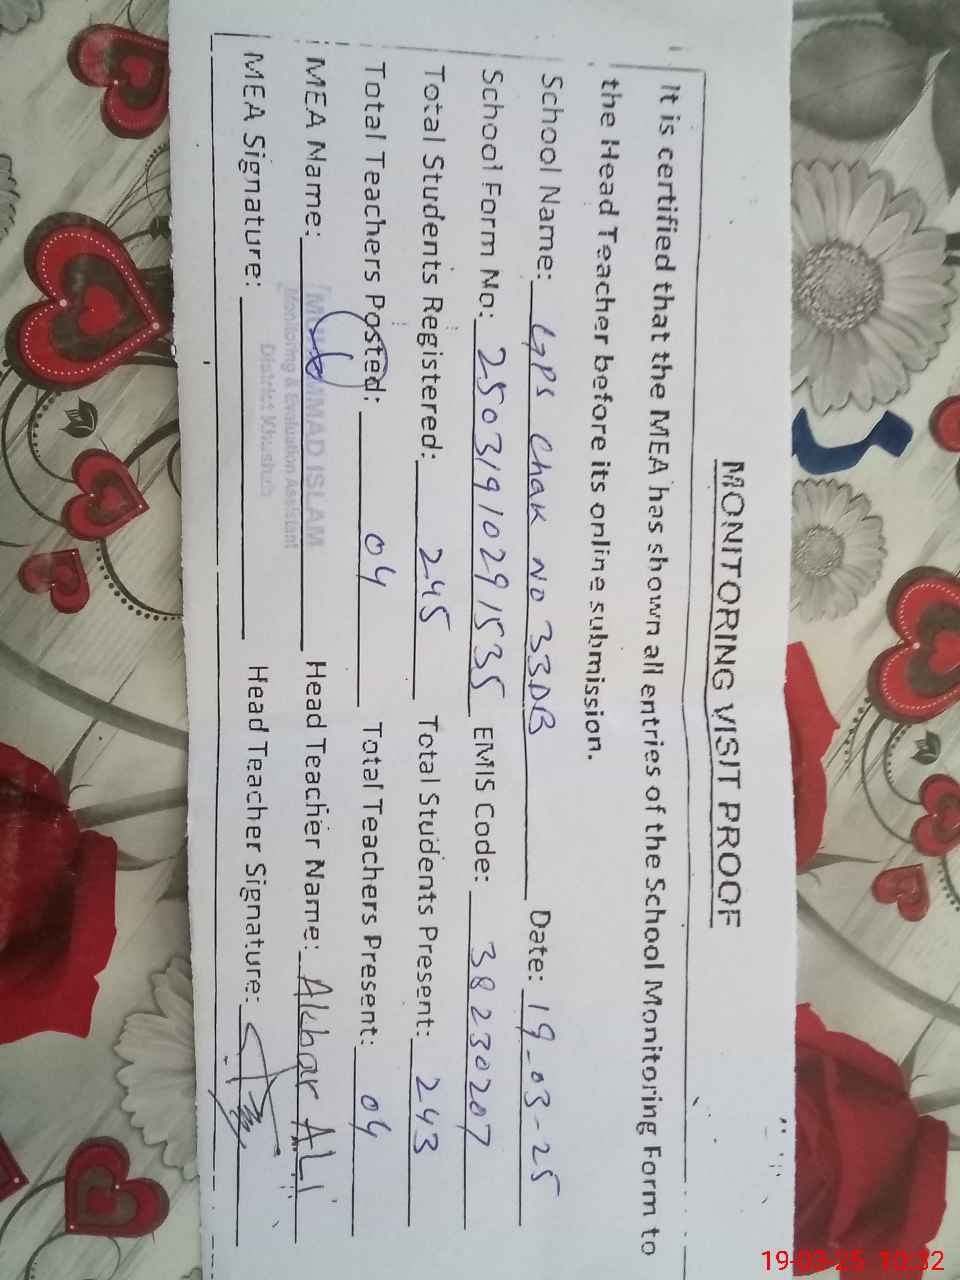 MONITORING VISIT PROOF
It is certified that the MEA has shown all entries of the School Monitoring Form to
the Head Teacher before its online submission.
School Name: GPS Chak No 33DB Date: 19-03-25
School Form No: 25031910291535 EMIS Code: 38230207
Total Students Registered: 245 Total Students Present: 243
Total Teachers Posted: 04 Total Teachers Present: 04
MEA Name: MUHAMMAD ISLAM Head Teacher Name: Akbar ALi
Monitoring & Evaluation Assistant
District Khushab
MEA Signature: Head Teacher Signature:
19-03-25 10:32